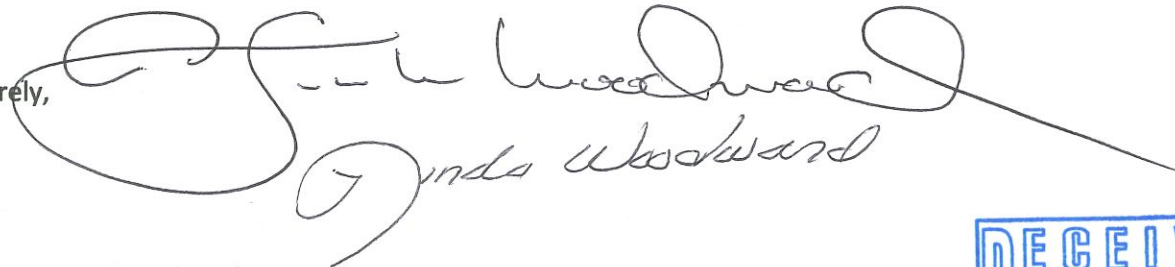 rely,
Woodward
Linda Woodward
DECEIV